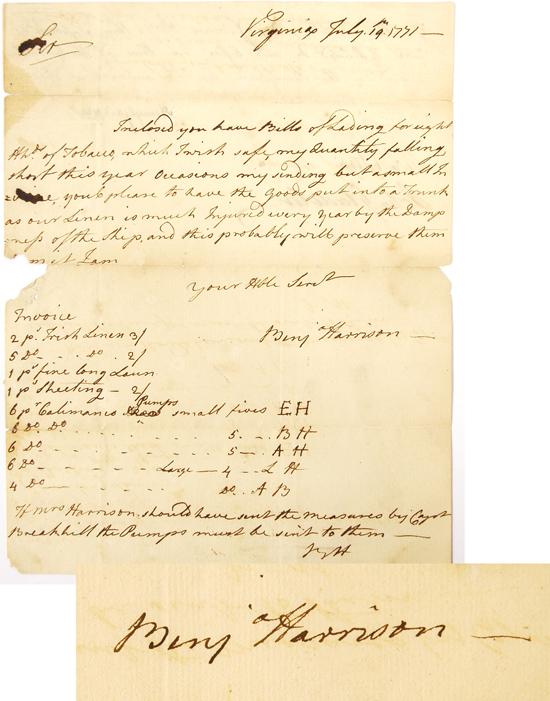 Virginia July 19th 1771 —
Sir
Inclosed you have Bills of Lading for eight
Hhds of Tobacco, which I wish safe, my Quantity falling
short this year Occasions my sending but a small In
you'l please to have the Goods put into a Trunk
as our Linen is much Injured every year by the Damp
ness of the Ship, and this probably will preserve them
I am
Your Hble Servt
Benja Harrison —
Invoice
2 ps Irish Linen 3/
5 Do - - - Do . 2/
1 ps fine long Lawn
1 ps Sheeting — 2/
6 pr Calimanco Pumps small fives EH
6 Do Do - - - - 5 - - BH
6 Do - - - - 5 — AH
6 Do - - - - Large — 4 — L H
4 Do - - - - Do . A B
If Mrs Harrison should have sent the measures by Capt
the Pumps must be sent to them —
BH
Benja Harrison —